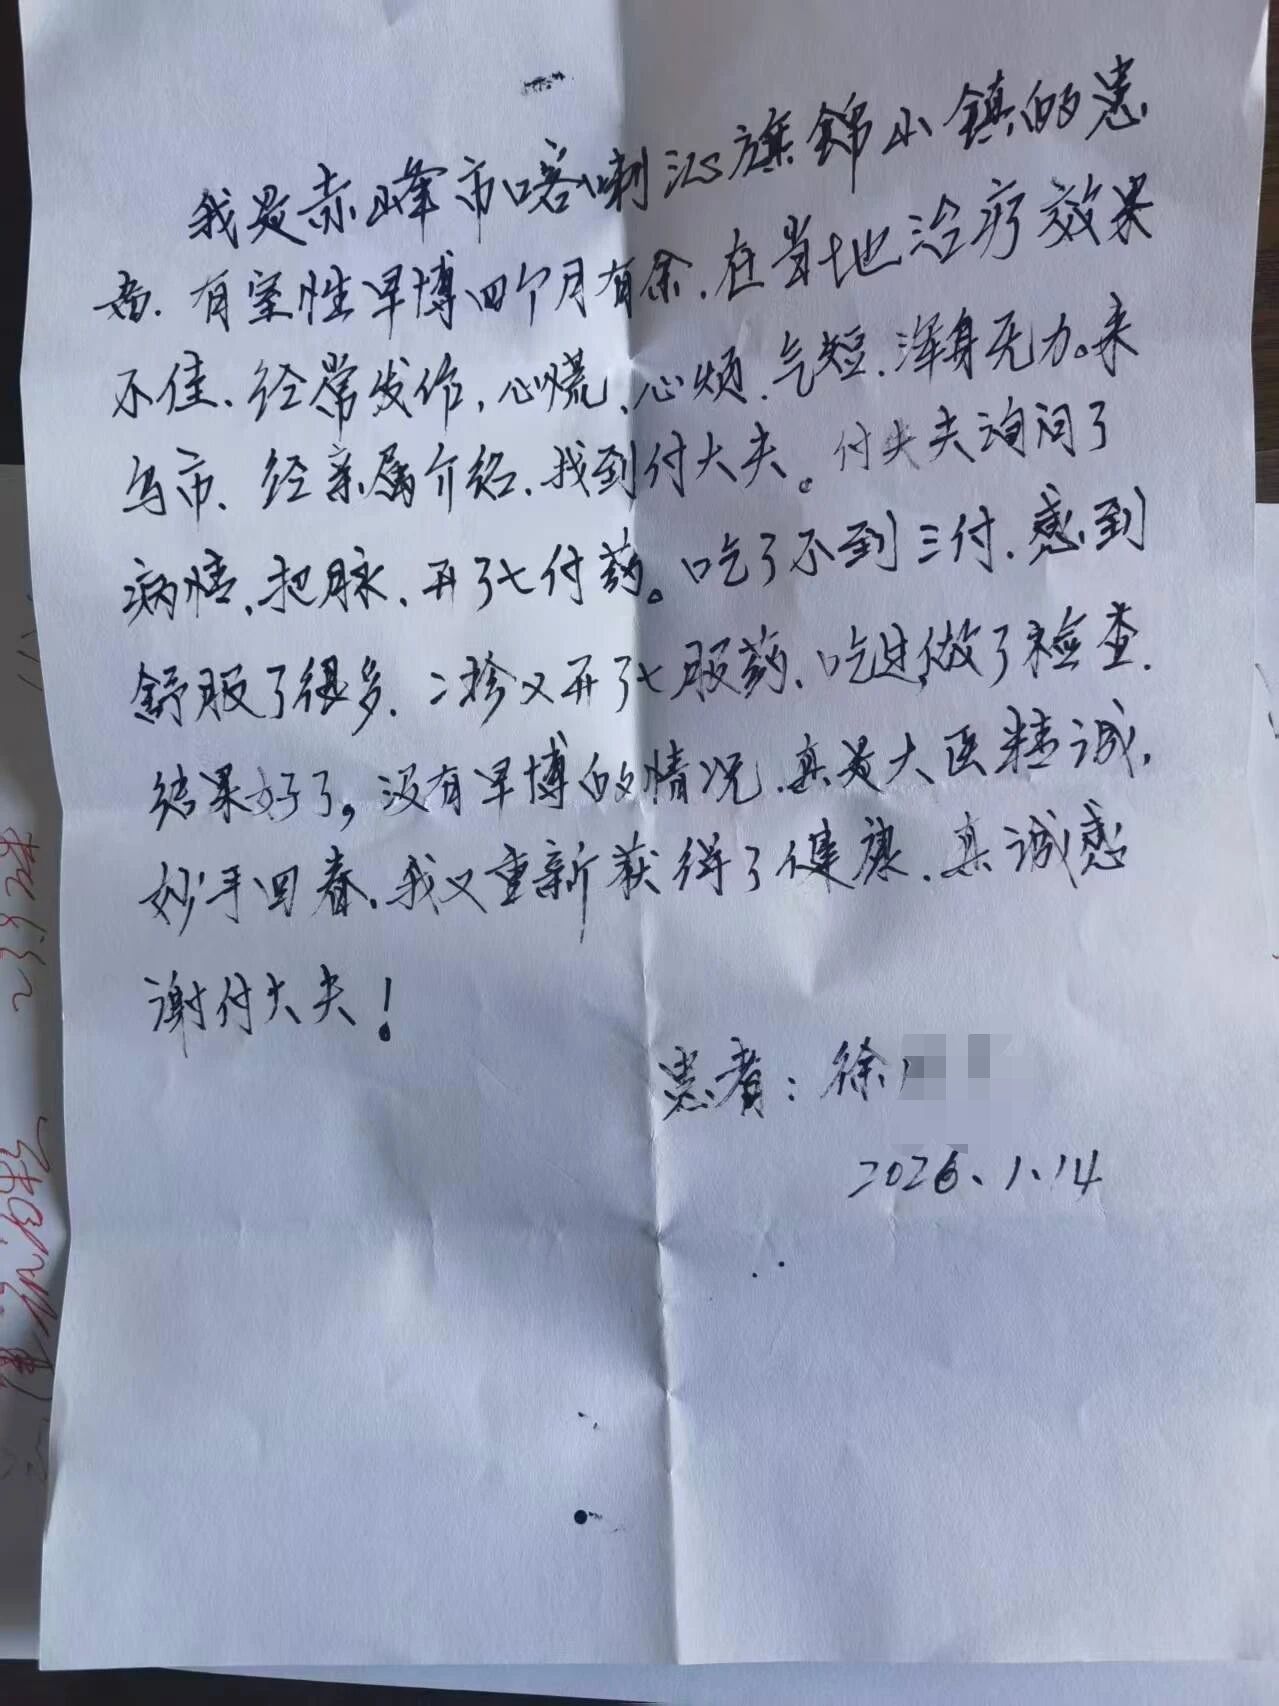 我是赤峰市喀喇沁旗锦山镇的患
者.有室性早博四个月有余.在当地治疗效果
不佳.经常发作,心慌、心烦.气短.浑身无力。来
乌市.经亲属介绍.找到付大夫。付大夫询问了
病情,把脉.开了七付药。吃了不到三付.感到
舒服了很多.二诊又开了七服药、吃过做了检查.
结果好了,没有早博的情况.真是大医精诚,
妙手回春.我又重新获得了健康.真诚感
谢付大夫!
患者:徐
2026.1.14